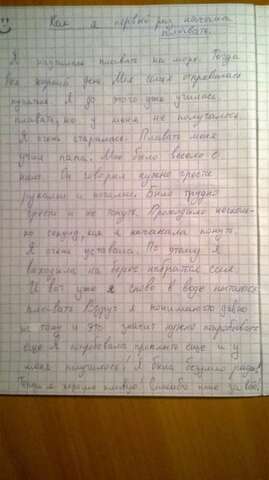 Как я первый раз начала
плавать.
Я научилась плавать на море. Тогда
был жаркий день. Моя семья отправилась
купаться. Я до этого уже училась
плавать, но у меня не получалось.
Я очень старалась. Плавать меня
учил папа. Мне было весело с
ним. Он говорил нужно грести
руками и ногами. Было трудно
грести и не тонуть. Проходило несколь-
ко секунд, как я начинала тонуть.
Я очень уставала. По этому я
выходила на берег набраться сил.
И вот уже я снова в воде пытаюсь
плавать. Вдруг я понимаю что давно
не тону и это значит нужно попробовать
ещё. Я попробовала проплыть ещё и у
меня получилось! Я была безумно рада!
Теперь я хорошо плаваю! Спасибо папе за это!